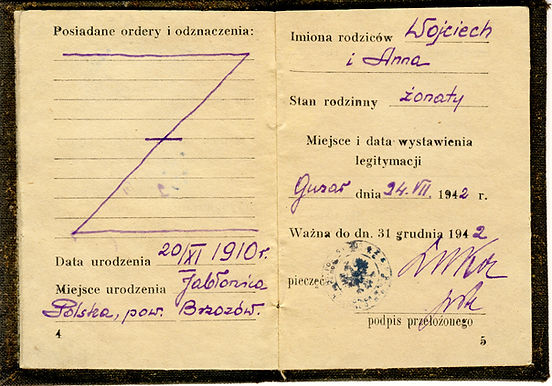 Posiadane ordery i odznaczenia:
Data urodzenia 20/XI 1910 r.
Miejsce urodzenia Jabłonica
Polska, pow. Brzozów.
4
Imiona rodziców Wojciech
i Anna
Stan rodzinny żonaty
Miejsce i data wystawienia
legitymacji
Guzar dnia 24.VII. 1942 r.
Ważna do dn. 31 grudnia 1942
pieczęć
podpis przełożonego
5